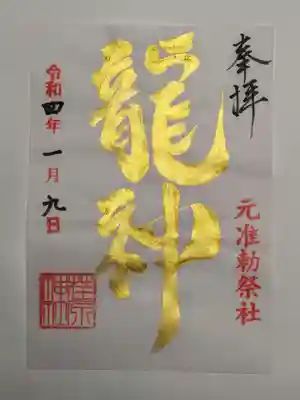 奉拝
元准勅祭社
龍神
令和四年一月九日